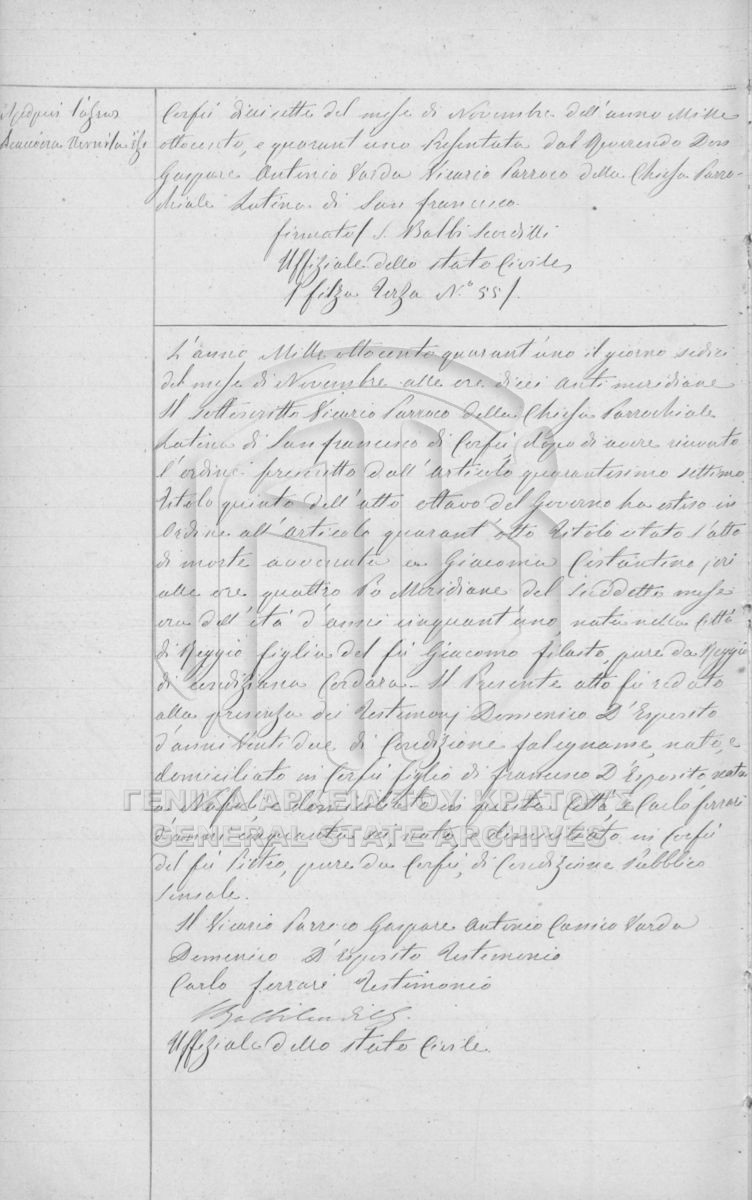 Corfù diciisette del mese di Novembre dell'anno Mille
ottocento, e quarant'uno Presentata dal Reverendo Don
Gaspare Antonio Varda Vicario Parroco della Chiesa Parro-
chiale Latina di San francisco.
firmato/ S. Balbi
Uffiziale dello stato Civile,
/ filza Terza N.º 55/.
L'anno Mille ottocento quarant'uno il giorno sedici
del mese di Novembre alle ore dieci antimeridiane
Il sottoscritto Vicario Parroco della Chiesa Parrochiale
Latina di San francisco di Corfù, dopo di avere ricevuto
l'ordine prescritto dall'articolo quarantesimo settimo
Titolo quinto dell'atto ottavo del Governo ha esteso in
Ordine all'articolo quarant'otto Titolo citato l'atto
di morte avvenuta a Giacoma Costantino jeri
alle ore quattro Po Meridiane del suddetto mese
era dell'età d'anni cinquant'uno nata nella Città
di Reggio figlia del fù Giacomo Filasto, pure da Reggio
di condiziona Cordara. Il Presente atto fù redato
alla presenza dei Testimonj Domenico D'Esposito
d'anni Venti due di Condizione falegname, nato, e
domiciliato in Corfù figlio di francisco D'Esposito nato
a Napoli e domiciliato in questa Città e Carlo ferrari
d'anni cinquanta sei, nato, e domiciliato in Corfù
del fù Pietro, pure da Corfù, di Condizione Pubblico
Sensale.
Il Vicario Parroco Gaspare Antonio Canico Varda
Domenico D'Esposito Testimonio
Carlo ferrari Testimonio
Uffiziale dello stato Civile.
ΓΕΝΙΚΑ ΑΡΧΕΙΑ ΤΟΥ ΚΡΑΤΟΥΣ
GENERAL STATE ARCHIVES